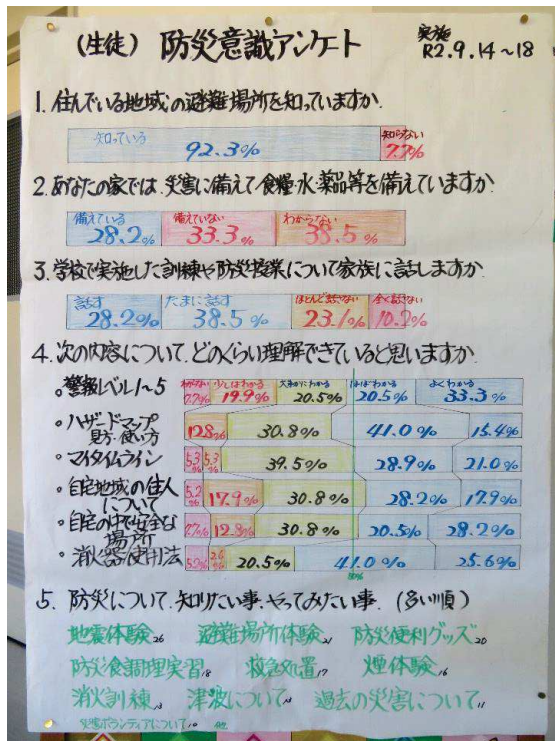 (生徒) 防災意識アンケート 実施 R2.9.14~18
1.住んでいる地域の避難場所を知っていますか.
知っている 92.3% 知らない 7.7%
2.あなたの家では、災害に備えて食糧・水・薬品等を備えていますか.
備えている 28.2% 備えていない 33.3% わからない 38.5%
3.学校で実施した訓練や防災授業について家族に話しますか.
話す 28.2% たまに話す 38.5% ほとんど話さない 23.1% 全く話さない 10.2%
4.次の内容について、どのくらい理解できていると思いますか.
わからない 少しはわかる 大まかにわかる ほぼわかる よくわかる
。警報レベル1~5 7.7% 17.9% 20.5% 20.5% 33.3%
。ハザードマップ 見方・使い方 12.8% 30.8% 41.0% 15.4%
。マイタイムライン 5.3% 5.3% 39.5% 28.9% 21.0%
。自宅地域の住人について 5.2% 17.9% 30.8% 28.2% 17.9%
。自宅の中で安全な場所 7.7% 12.8% 30.8% 20.5% 28.2%
。消火器使用法 5.2% 2.6% 20.5% 41.0% 25.6%
5.防災について、知りたい事、やってみたい事.(多い順)
地震体験 26 避難場所体験 21 防災便利グッズ 20
防災食調理実習 18 救急処置 17 煙体験 16
消火訓練 13 津波について 13 過去の災害について 11
災害ボランティアについて 10 他